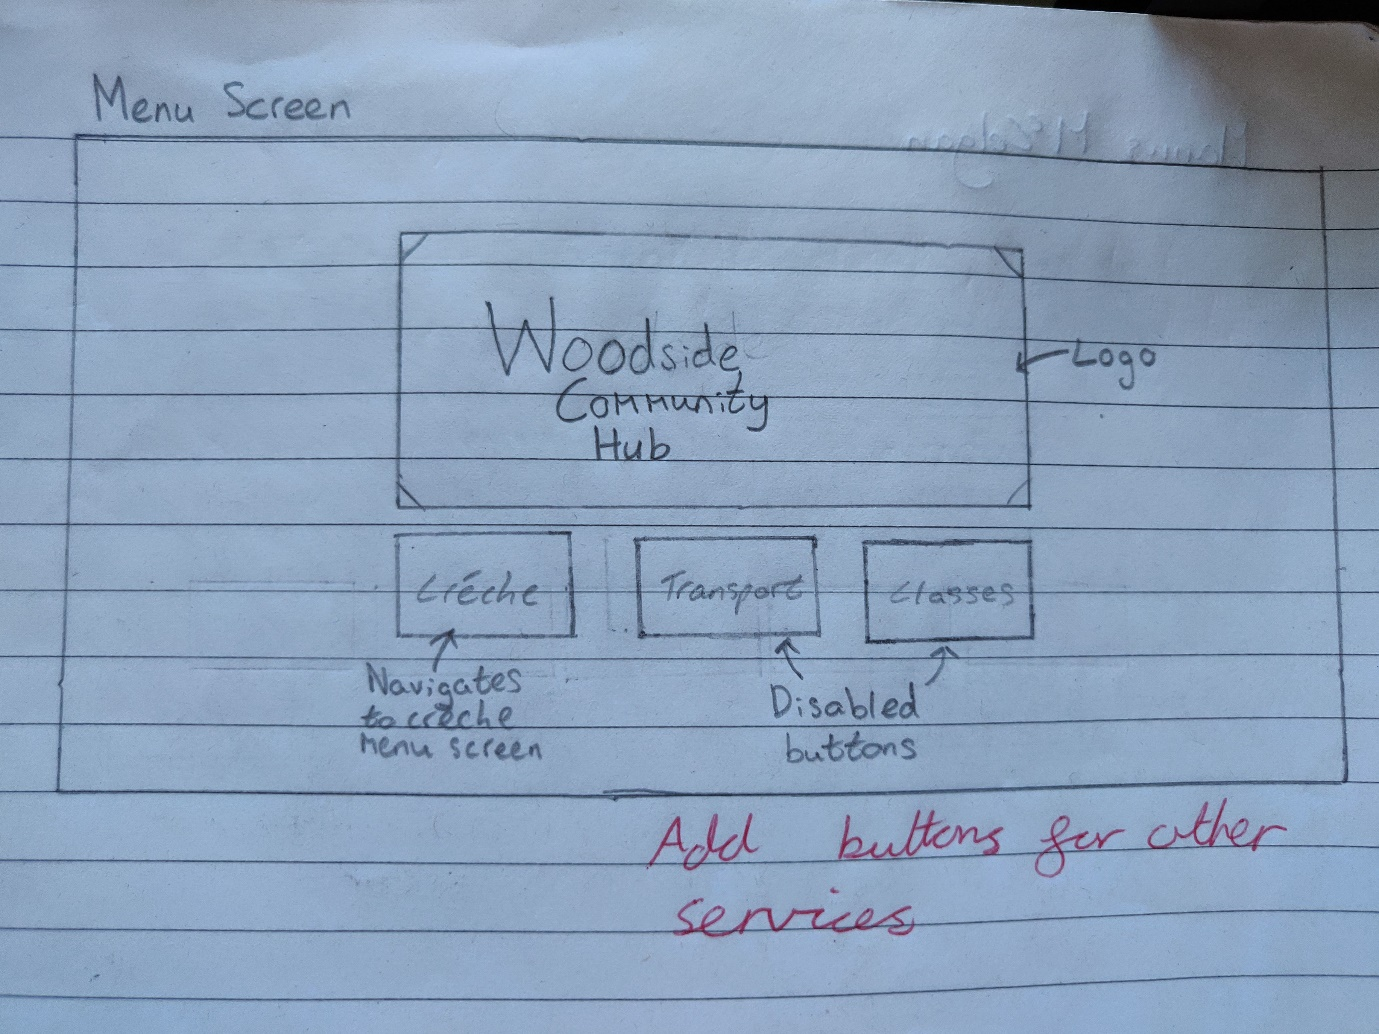 Menu Screen
Manus McEdgan
Woodside
Community
Hub
Logo
Créche
Transport
Classes
Navigates
to crèche
menu screen
Disabled
buttons
Add buttons for other
services